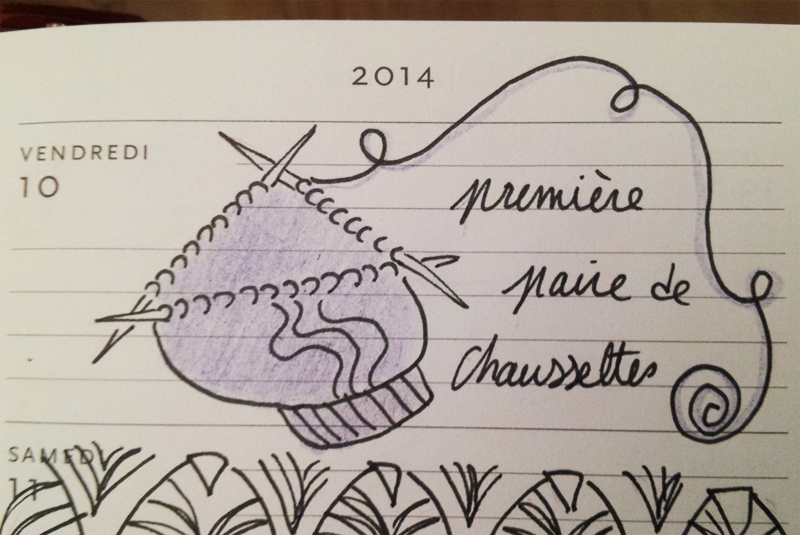 2014
VENDREDI
10
première
paire de
chaussettes
SAMEDI
11